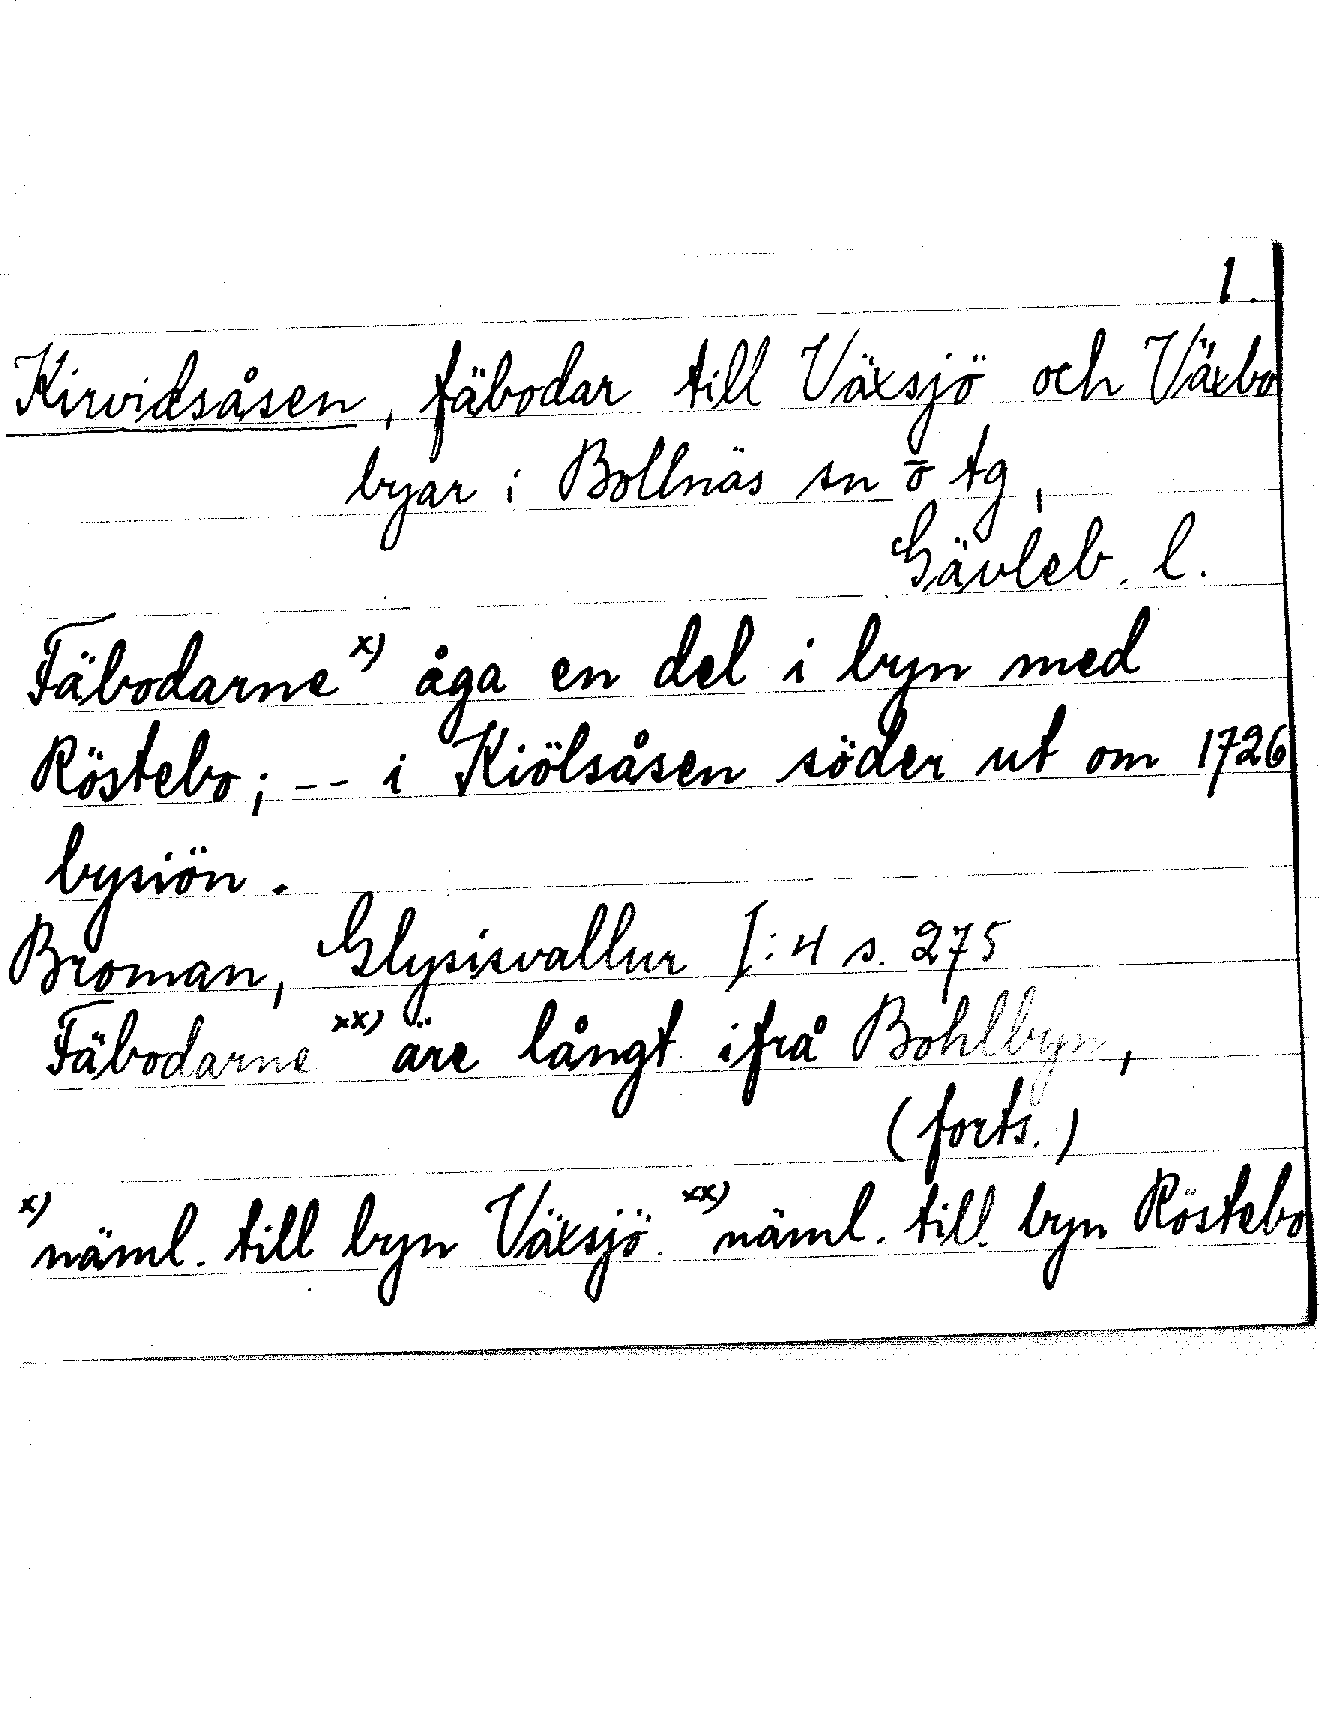 1.
Kirvidsåsen, fäbodar till Växsjö och Växbo
byar i Bollnäs sn ö tg,
Gävleb. l.
Fäbodarne x) åga en del i byn med
Röstebo; -- i Kiölsåsen söder ut om 1726
bysiön.
Broman, Glysisvallur I:4 s. 275
Fäbodarne xx) äre långt ifrå Bohlbyn,
(forts.)
x) näml. till byn Växsjö. xx) näml. till byn Röstebo